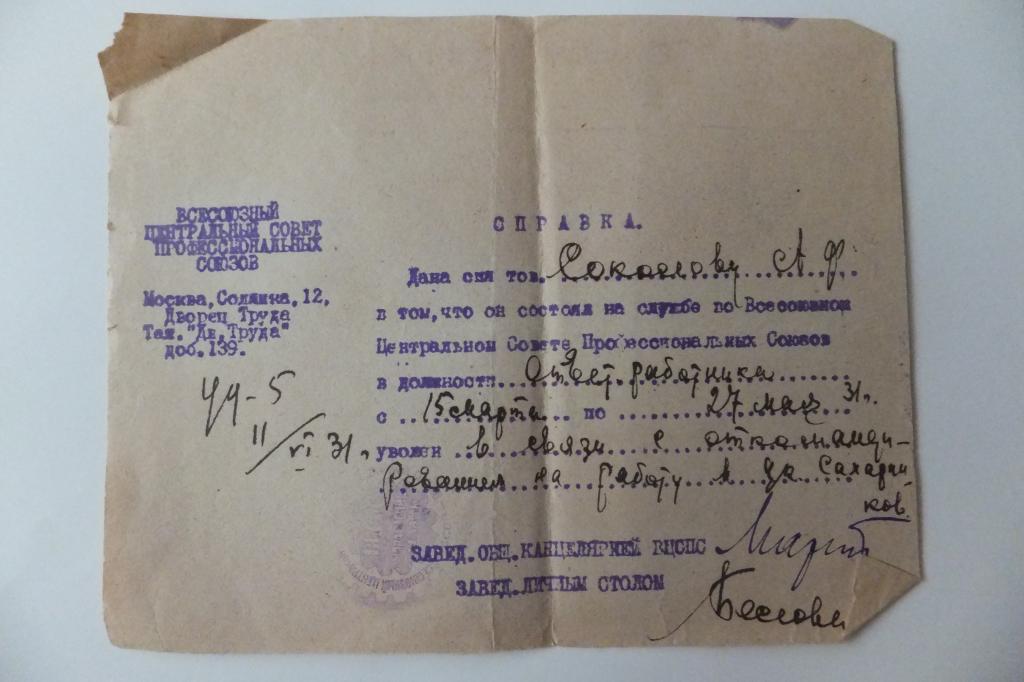 ВСЕСОЮЗНЫЙ
ЦЕНТРАЛЬНЫЙ СОВЕТ
ПРОФЕССИОНАЛЬНЫХ
СОЮЗОВ
Москва, Солянка, 12,
Дворец Труда
Тел. "Дв. Труда"
доб. 139.
11/VI 31 г.
СПРАВКА.
Дана сия тов. Соколову А. Ф.
в том, что он состоял на службе во Всесоюзном
Центральном Совете Профессиональных Союзов
в должности Ответ. работника
с 15 марта по 27 мая 31 г.
уволен в связи с откоманди-
рования на работу
ЗАВЕД. ОБЩ. КАНЦЕЛЯРИЕЙ ВЦСПС
ЗАВЕД. ЛИЧНЫМ СТОЛОМ